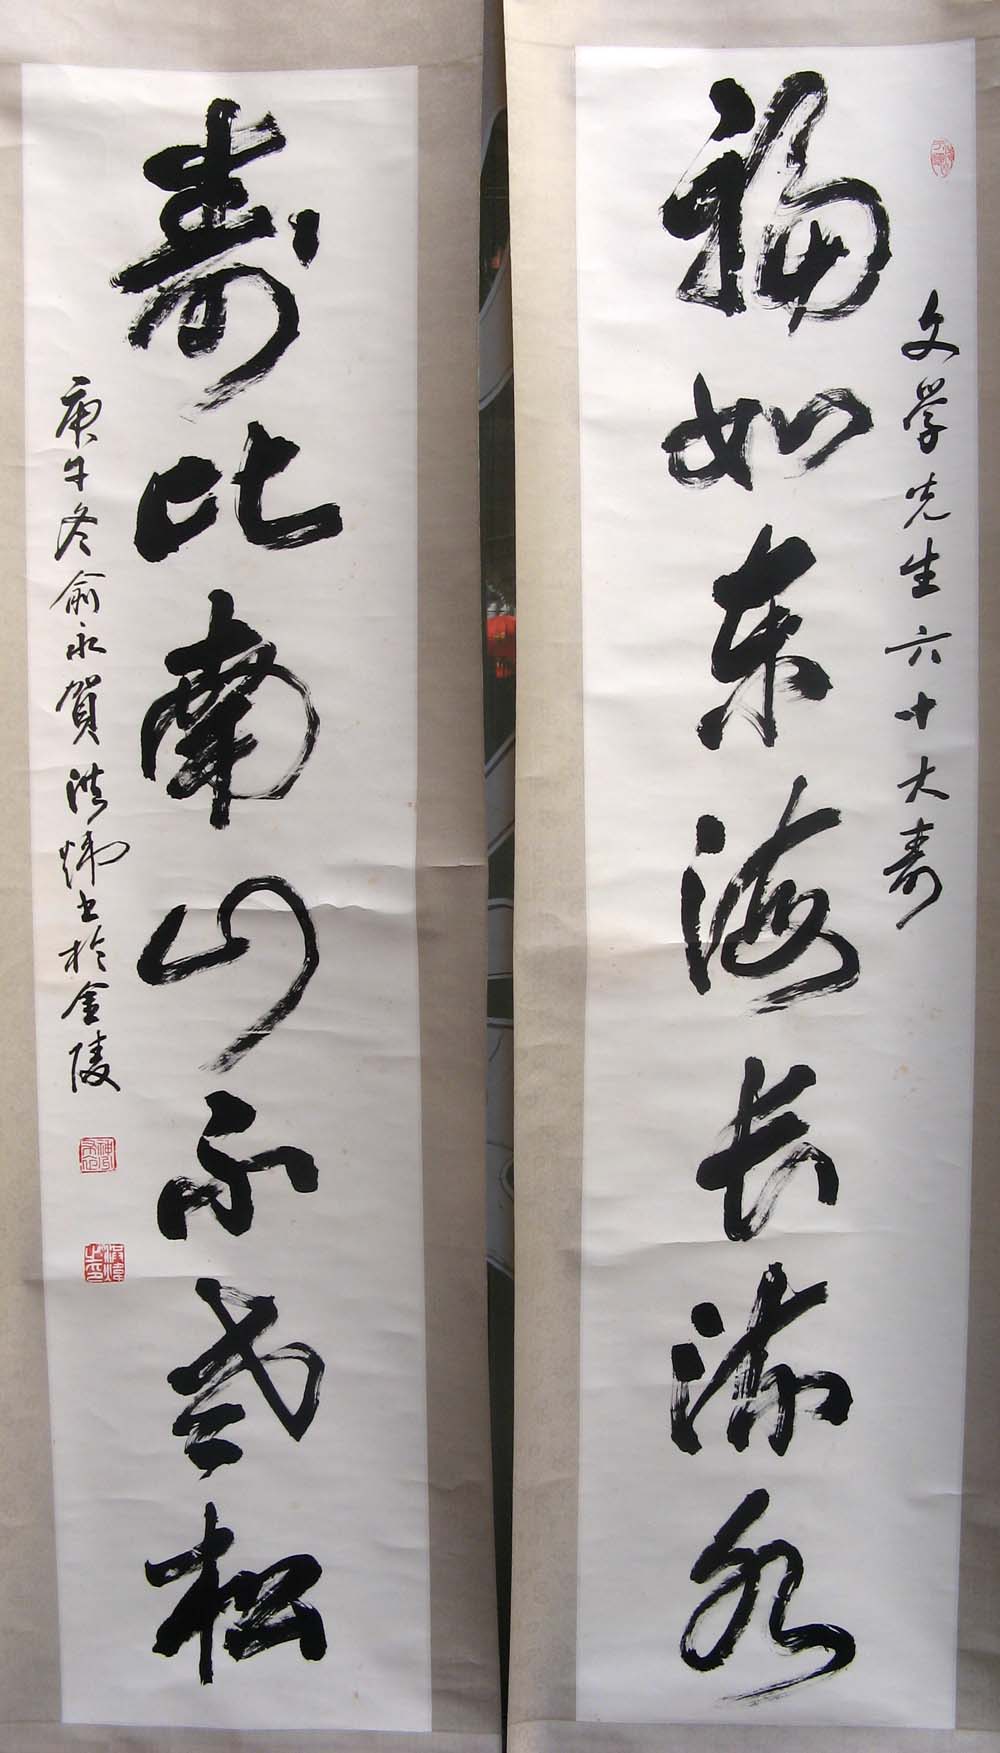 文学先生六十大寿
福如东海长流水
寿比南山不老松
庚午冬俞永贺洪炜书於金陵